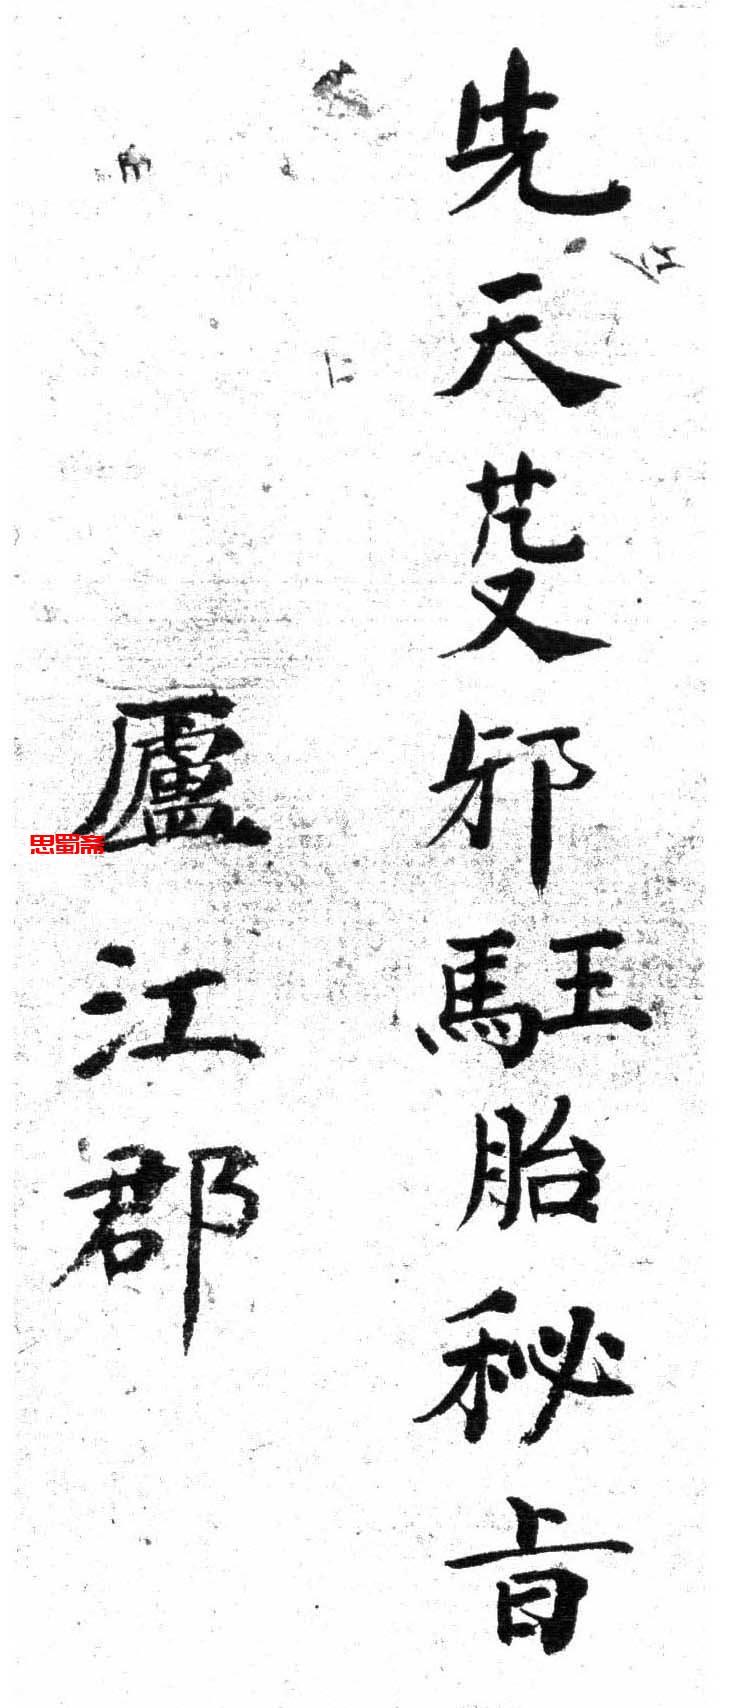 先天芟邪駐胎秘㫖
廬江郡
思蜀斋